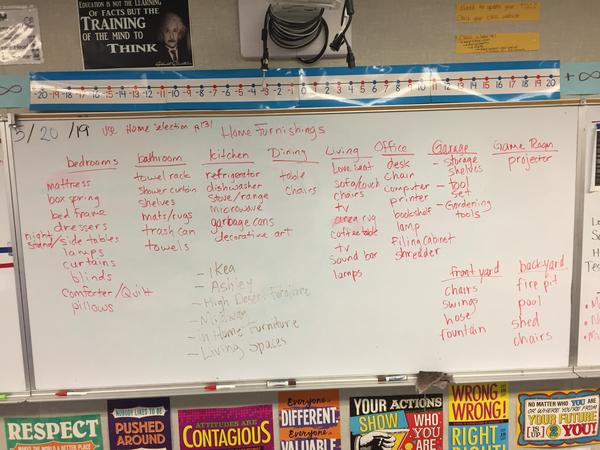 EDUCATION IS NOT THE LEARNING
OF FACTS BUT THE
TRAINING
OF THE MIND TO
THINK
-20 -19 -18 -17 -16 -15 -14 -13 -12 -11 -10 -9 -8 -7 -6 -5 -4 -3 -2 -1 0 1 2 3 4 5 6 7 8 9 10 11 12 13 14 15 16 17 18 19 20
+∞
5/20/19 use Home Selection p131
Home Furnishings
bedrooms
mattress
box spring
bed frame
dressers
night stand/side tables
lamps
curtains
blinds
comforter/Quilt
pillows
bathroom
towel rack
shower curtain
shelves
mats/rugs
trash can
towels
kitchen
refrigerator
dishwasher
stove/range
microwave
garbage cans
decorative art
Dining
table
chairs
Living
Love seat
sofa/couch
chairs
tv
area rug
coffee table
tv
sound bar
lamps
Office
desk
chair
computer
printer
bookshelf
lamp
Filing cabinet
shredder
Garage
- storage
shelves
- tool
set
- Gardening
tools
Game Room
projector
- Ikea
- Ashley
- High Desert Furniture
- In Home Furniture
- Living Spaces
front yard
chairs
swings
hose
fountain
backyard
fire pit
pool
shed
chairs
RESPECT
MAKES THE WORLD A BETTER PLACE
NOBODY LIKES TO BE
PUSHED
AROUND
ATTITUDES ARE
CONTAGIOUS
Everyone is
DIFFERENT,
Everyone is
VALUABLE
YOUR ACTIONS
SHOW WHO
YOU ARE
WRONG IS
WRONG!
RIGHT IS
RIGHT!
NO MATTER WHO YOU ARE
OR WHERE YOU'RE FROM
YOUR FUTURE
IS UP 2 YOU!